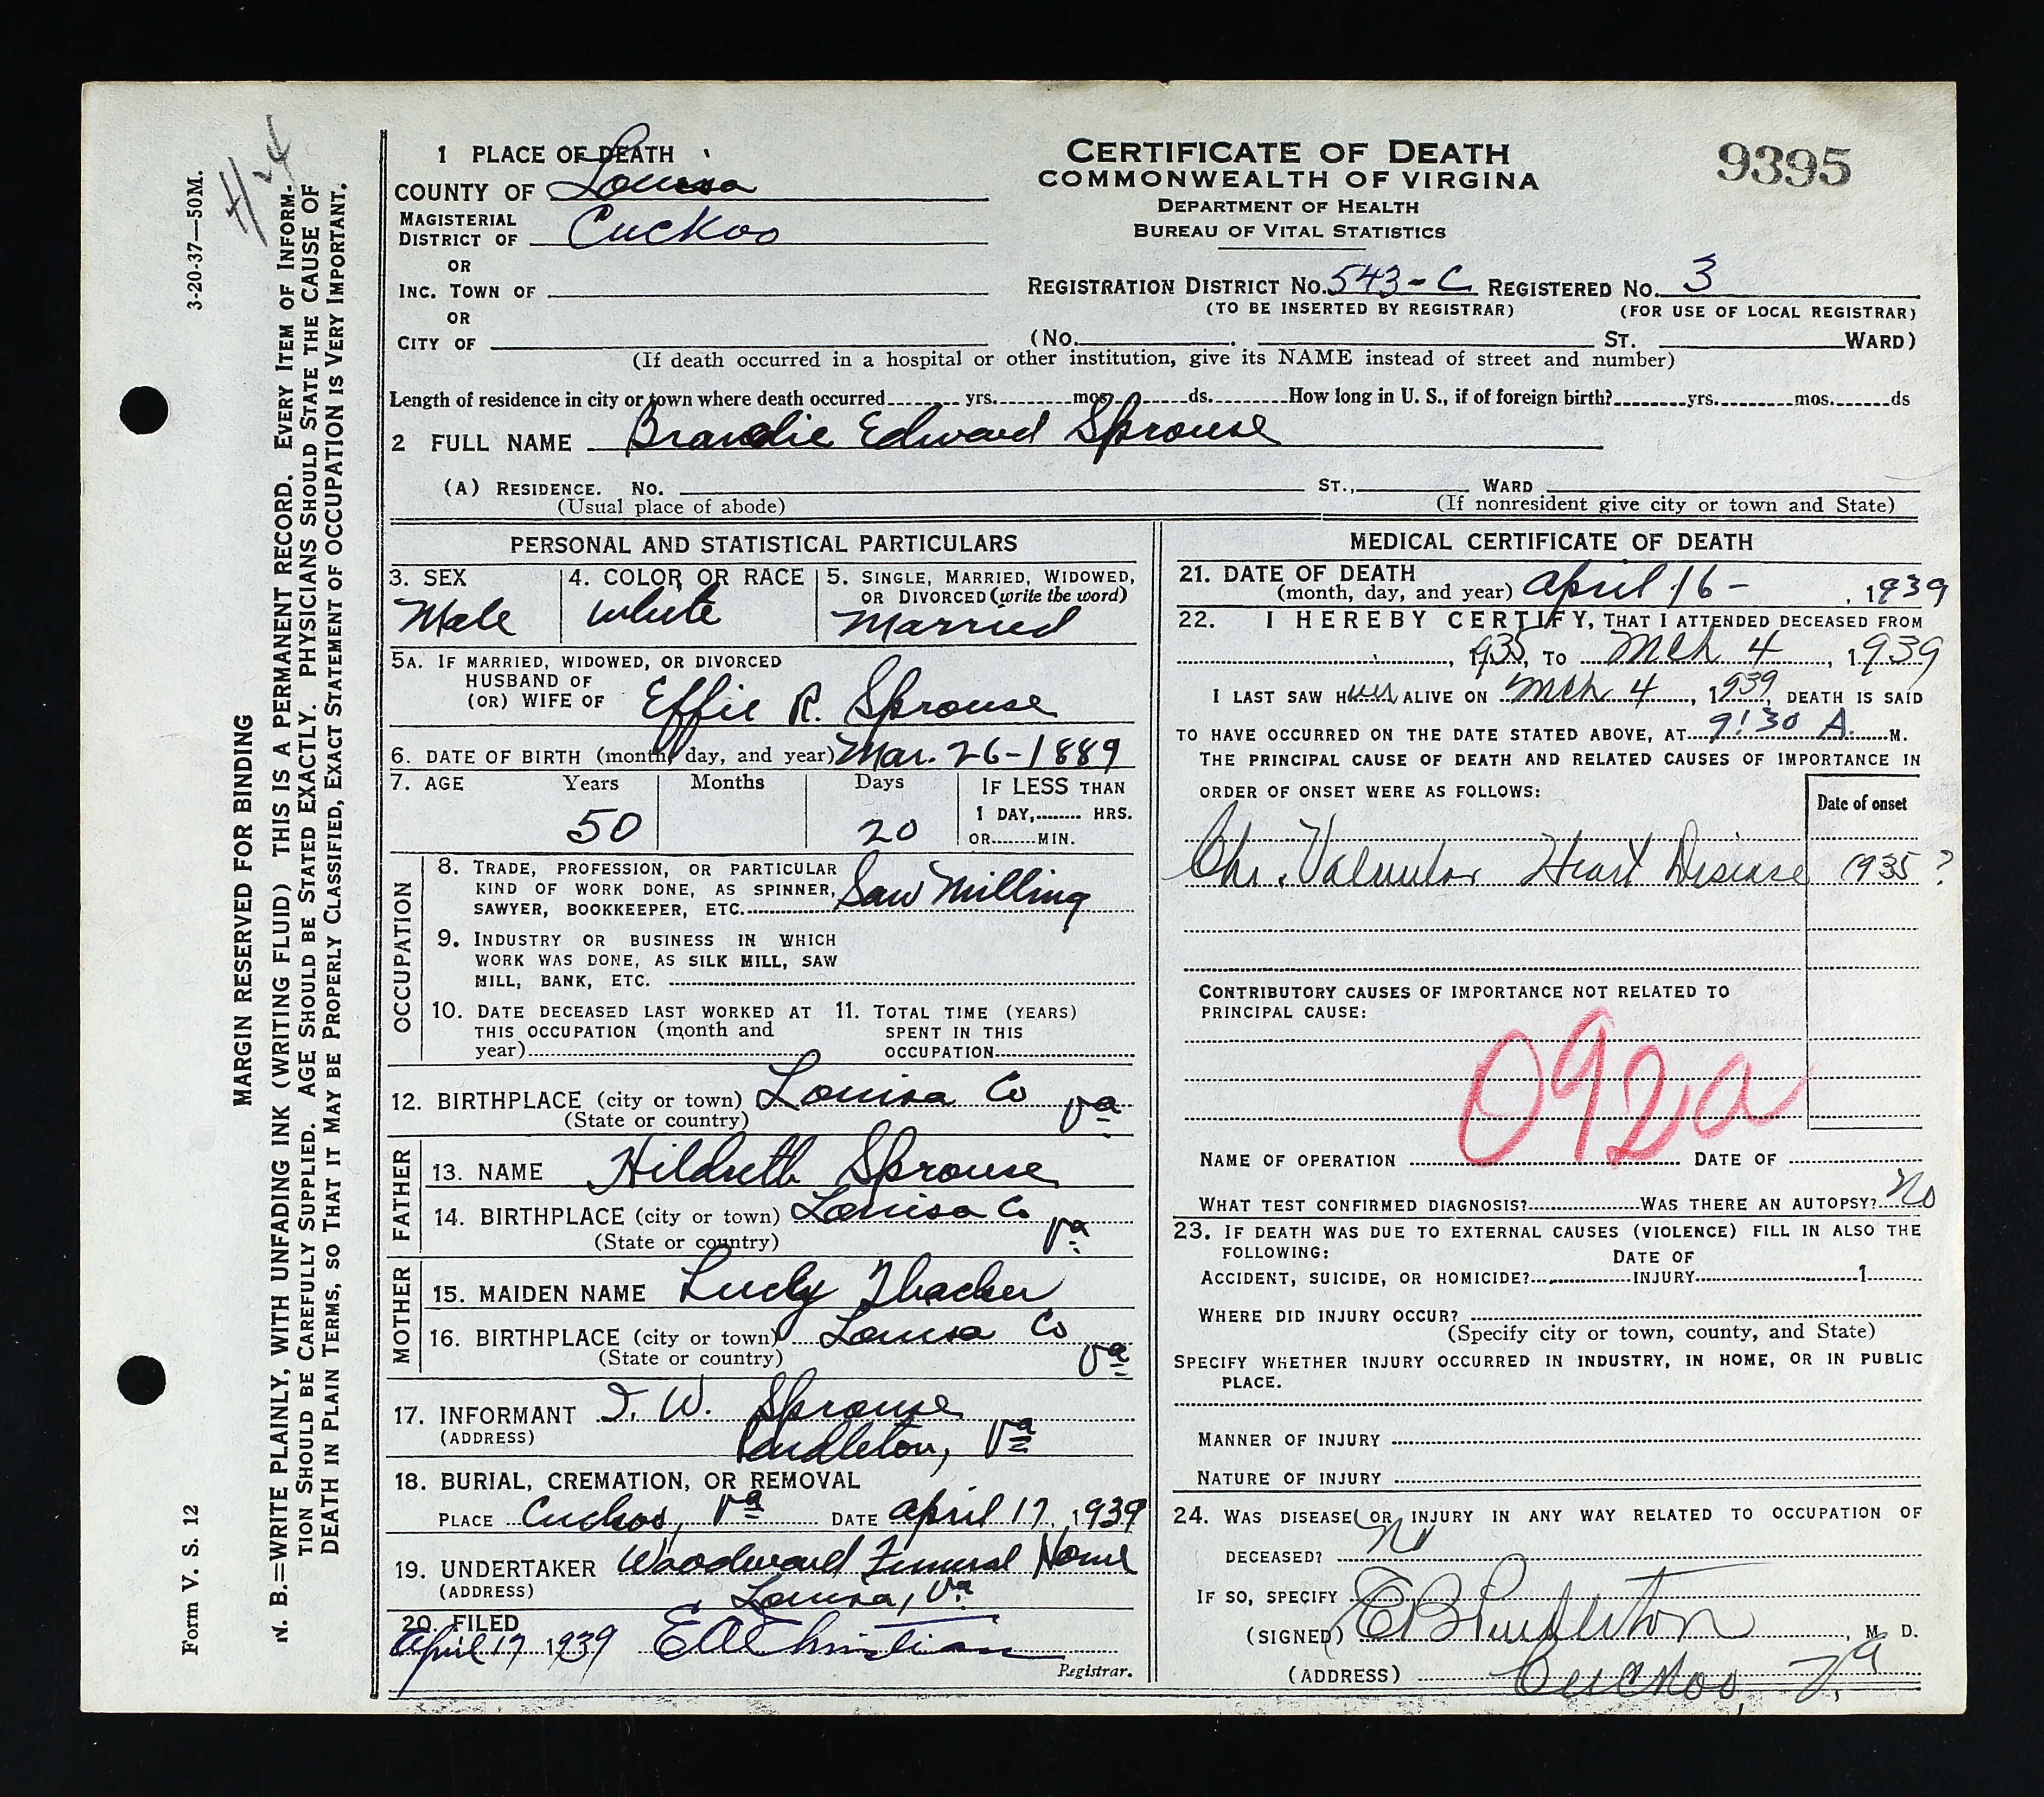 3-20-37—50M.
H24
MARGIN RESERVED FOR BINDING
N. B.=WRITE PLAINLY, WITH UNFADING INK (WRITING FLUID) THIS IS A PERMANENT RECORD. EVERY ITEM OF INFORM-
TION SHOULD BE CAREFULLY SUPPLIED. AGE SHOULD BE STATED EXACTLY. PHYSICIANS SHOULD STATE THE CAUSE OF
DEATH IN PLAIN TERMS, SO THAT IT MAY BE PROPERLY CLASSIFIED, EXACT STATEMENT OF OCCUPATION IS VERY IMPORTANT.
Form V. S. 12
CERTIFICATE OF DEATH
COMMONWEALTH OF VIRGINA
DEPARTMENT OF HEALTH
BUREAU OF VITAL STATISTICS
9395
1 PLACE OF DEATH
COUNTY OF Louisa
MAGISTERIAL
DISTRICT OF Cuckoo
OR
INC. TOWN OF
OR
CITY OF
REGISTRATION DISTRICT No. 543-C REGISTERED No. 3
(TO BE INSERTED BY REGISTRAR) (FOR USE OF LOCAL REGISTRAR)
(No. ST. WARD)
(If death occurred in a hospital or other institution, give its NAME instead of street and number)
Length of residence in city or town where death occurred yrs. mos. ds. How long in U. S., if of foreign birth? yrs. mos. ds
2 FULL NAME Brandie Edward Sprouse
(A) RESIDENCE. No. ST., WARD
(Usual place of abode) (If nonresident give city or town and State)
PERSONAL AND STATISTICAL PARTICULARS
3. SEX 4. COLOR OR RACE 5. SINGLE, MARRIED, WIDOWED,
OR DIVORCED (write the word)
Male White Married
5A. IF MARRIED, WIDOWED, OR DIVORCED
HUSBAND OF
(OR) WIFE OF Effie R. Sprouse
6. DATE OF BIRTH (month, day, and year) Mar. 26-1889
7. AGE Years Months Days IF LESS THAN
1 DAY, HRS.
50 20 OR MIN.
OCCUPATION
8. TRADE, PROFESSION, OR PARTICULAR
KIND OF WORK DONE, AS SPINNER,
SAWYER, BOOKKEEPER, ETC. Saw Milling
9. INDUSTRY OR BUSINESS IN WHICH
WORK WAS DONE, AS SILK MILL, SAW
MILL, BANK, ETC.
10. DATE DECEASED LAST WORKED AT 11. TOTAL TIME (YEARS)
THIS OCCUPATION (month and SPENT IN THIS
year) OCCUPATION
12. BIRTHPLACE (city or town) Louisa Co
(State or country) Va
FATHER
13. NAME Hildreth Sprouse
14. BIRTHPLACE (city or town) Louisa Co
(State or country) Va
MOTHER
15. MAIDEN NAME Lucly Thacker
16. BIRTHPLACE (city or town) Louisa Co
(State or country) Va
17. INFORMANT I. W. Sprouse
(ADDRESS) Pendleton, Va
18. BURIAL, CREMATION, OR REMOVAL
PLACE Cuckoo, Va DATE April 17, 1939
19. UNDERTAKER Woodward Funeral Home
(ADDRESS) Louisa, Va
20. FILED
April 17 1939 E A Christian
Registrar.
MEDICAL CERTIFICATE OF DEATH
21. DATE OF DEATH
(month, day, and year) April 16 - , 1939
22. I HEREBY CERTIFY, THAT I ATTENDED DECEASED FROM
, 1935, TO Mch 4, 1939
I LAST SAW HIM ALIVE ON Mch 4, 1939, DEATH IS SAID
TO HAVE OCCURRED ON THE DATE STATED ABOVE, AT 9:30 A. M.
THE PRINCIPAL CAUSE OF DEATH AND RELATED CAUSES OF IMPORTANCE IN
ORDER OF ONSET WERE AS FOLLOWS:
Date of onset
Chr. Valvular Heart Disease 1935 ?
CONTRIBUTORY CAUSES OF IMPORTANCE NOT RELATED TO
PRINCIPAL CAUSE:
092a
NAME OF OPERATION DATE OF
WHAT TEST CONFIRMED DIAGNOSIS? WAS THERE AN AUTOPSY? No
23. IF DEATH WAS DUE TO EXTERNAL CAUSES (VIOLENCE) FILL IN ALSO THE
FOLLOWING: DATE OF
ACCIDENT, SUICIDE, OR HOMICIDE? INJURY 1
WHERE DID INJURY OCCUR?
(Specify city or town, county, and State)
SPECIFY WHETHER INJURY OCCURRED IN INDUSTRY, IN HOME, OR IN PUBLIC
PLACE.
MANNER OF INJURY
NATURE OF INJURY
24. WAS DISEASE OR INJURY IN ANY WAY RELATED TO OCCUPATION OF
DECEASED? No
IF SO, SPECIFY
(SIGNED) E B Pendleton, M. D.
(ADDRESS) Cuckoo, Va